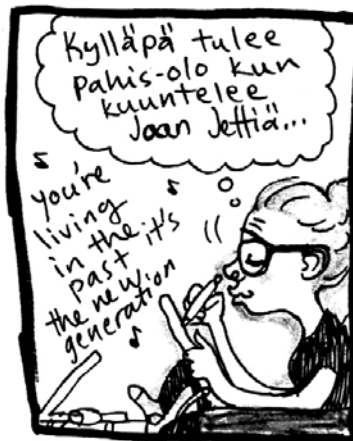 Kylläpä tulee
pahis-olo kun
kuuntelee
Joan Jettiä...
you're
living
in the it's
past
the new
generation